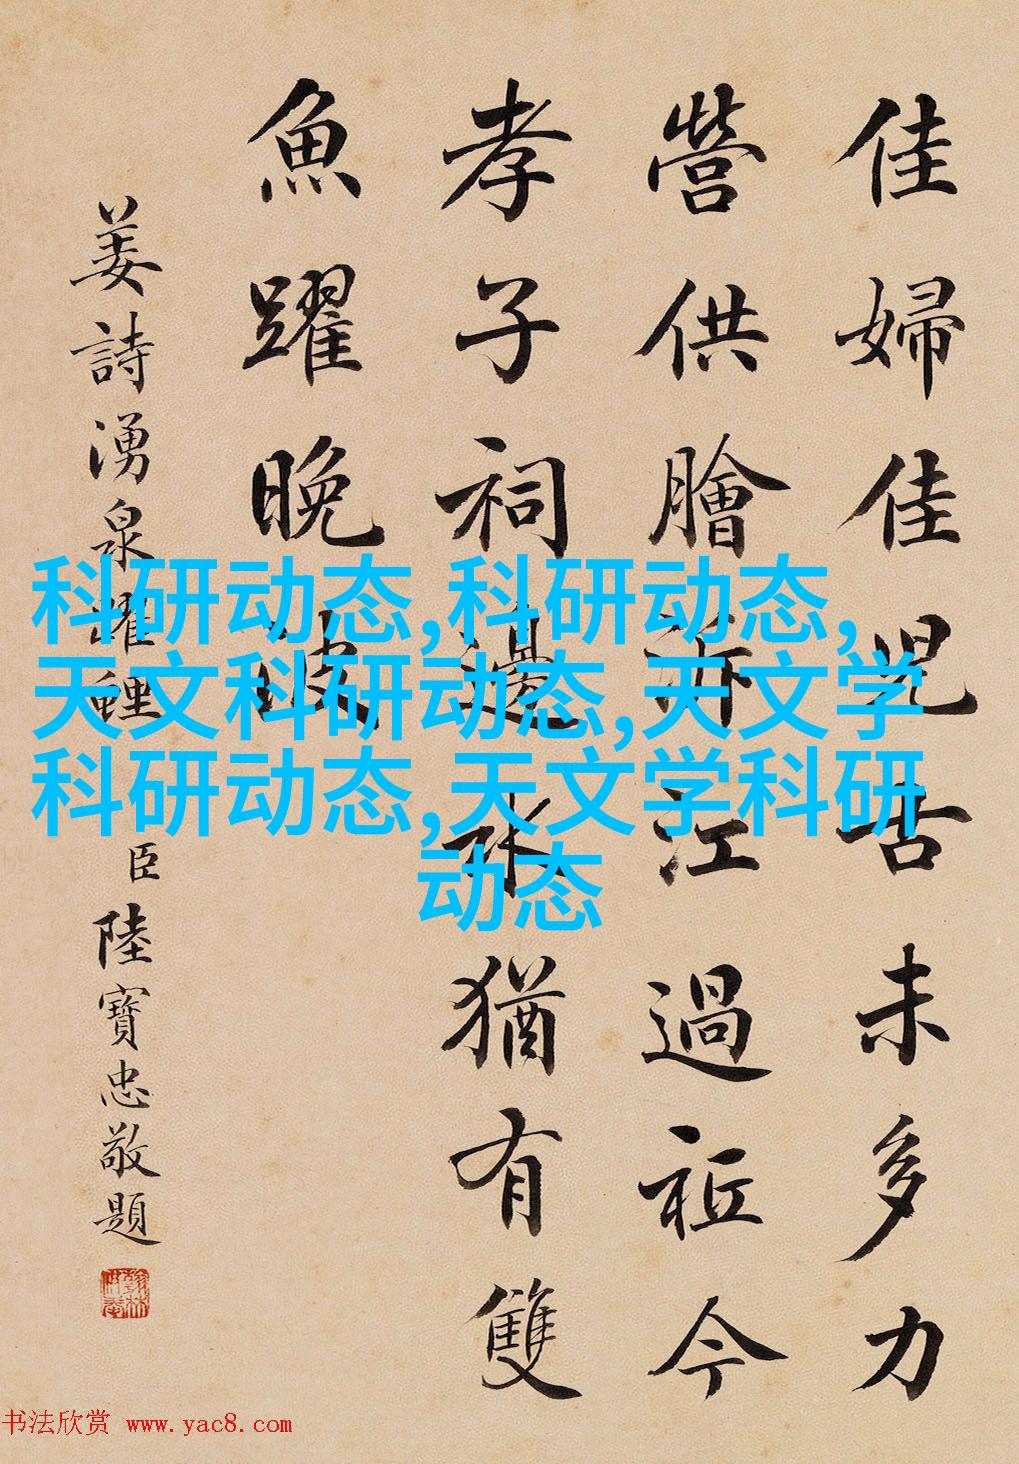 佳婦佳兒古未多力
營供膾泝江過祗今
孝子祠邊水猶有雙
魚躍晚波
姜詩湧泉躍鯉 臣陸寶忠敬題
科研动态,科研动态,
天文科研动态,天文学
科研动态,天文学科研
动态
书法欣赏 www.yac8.com